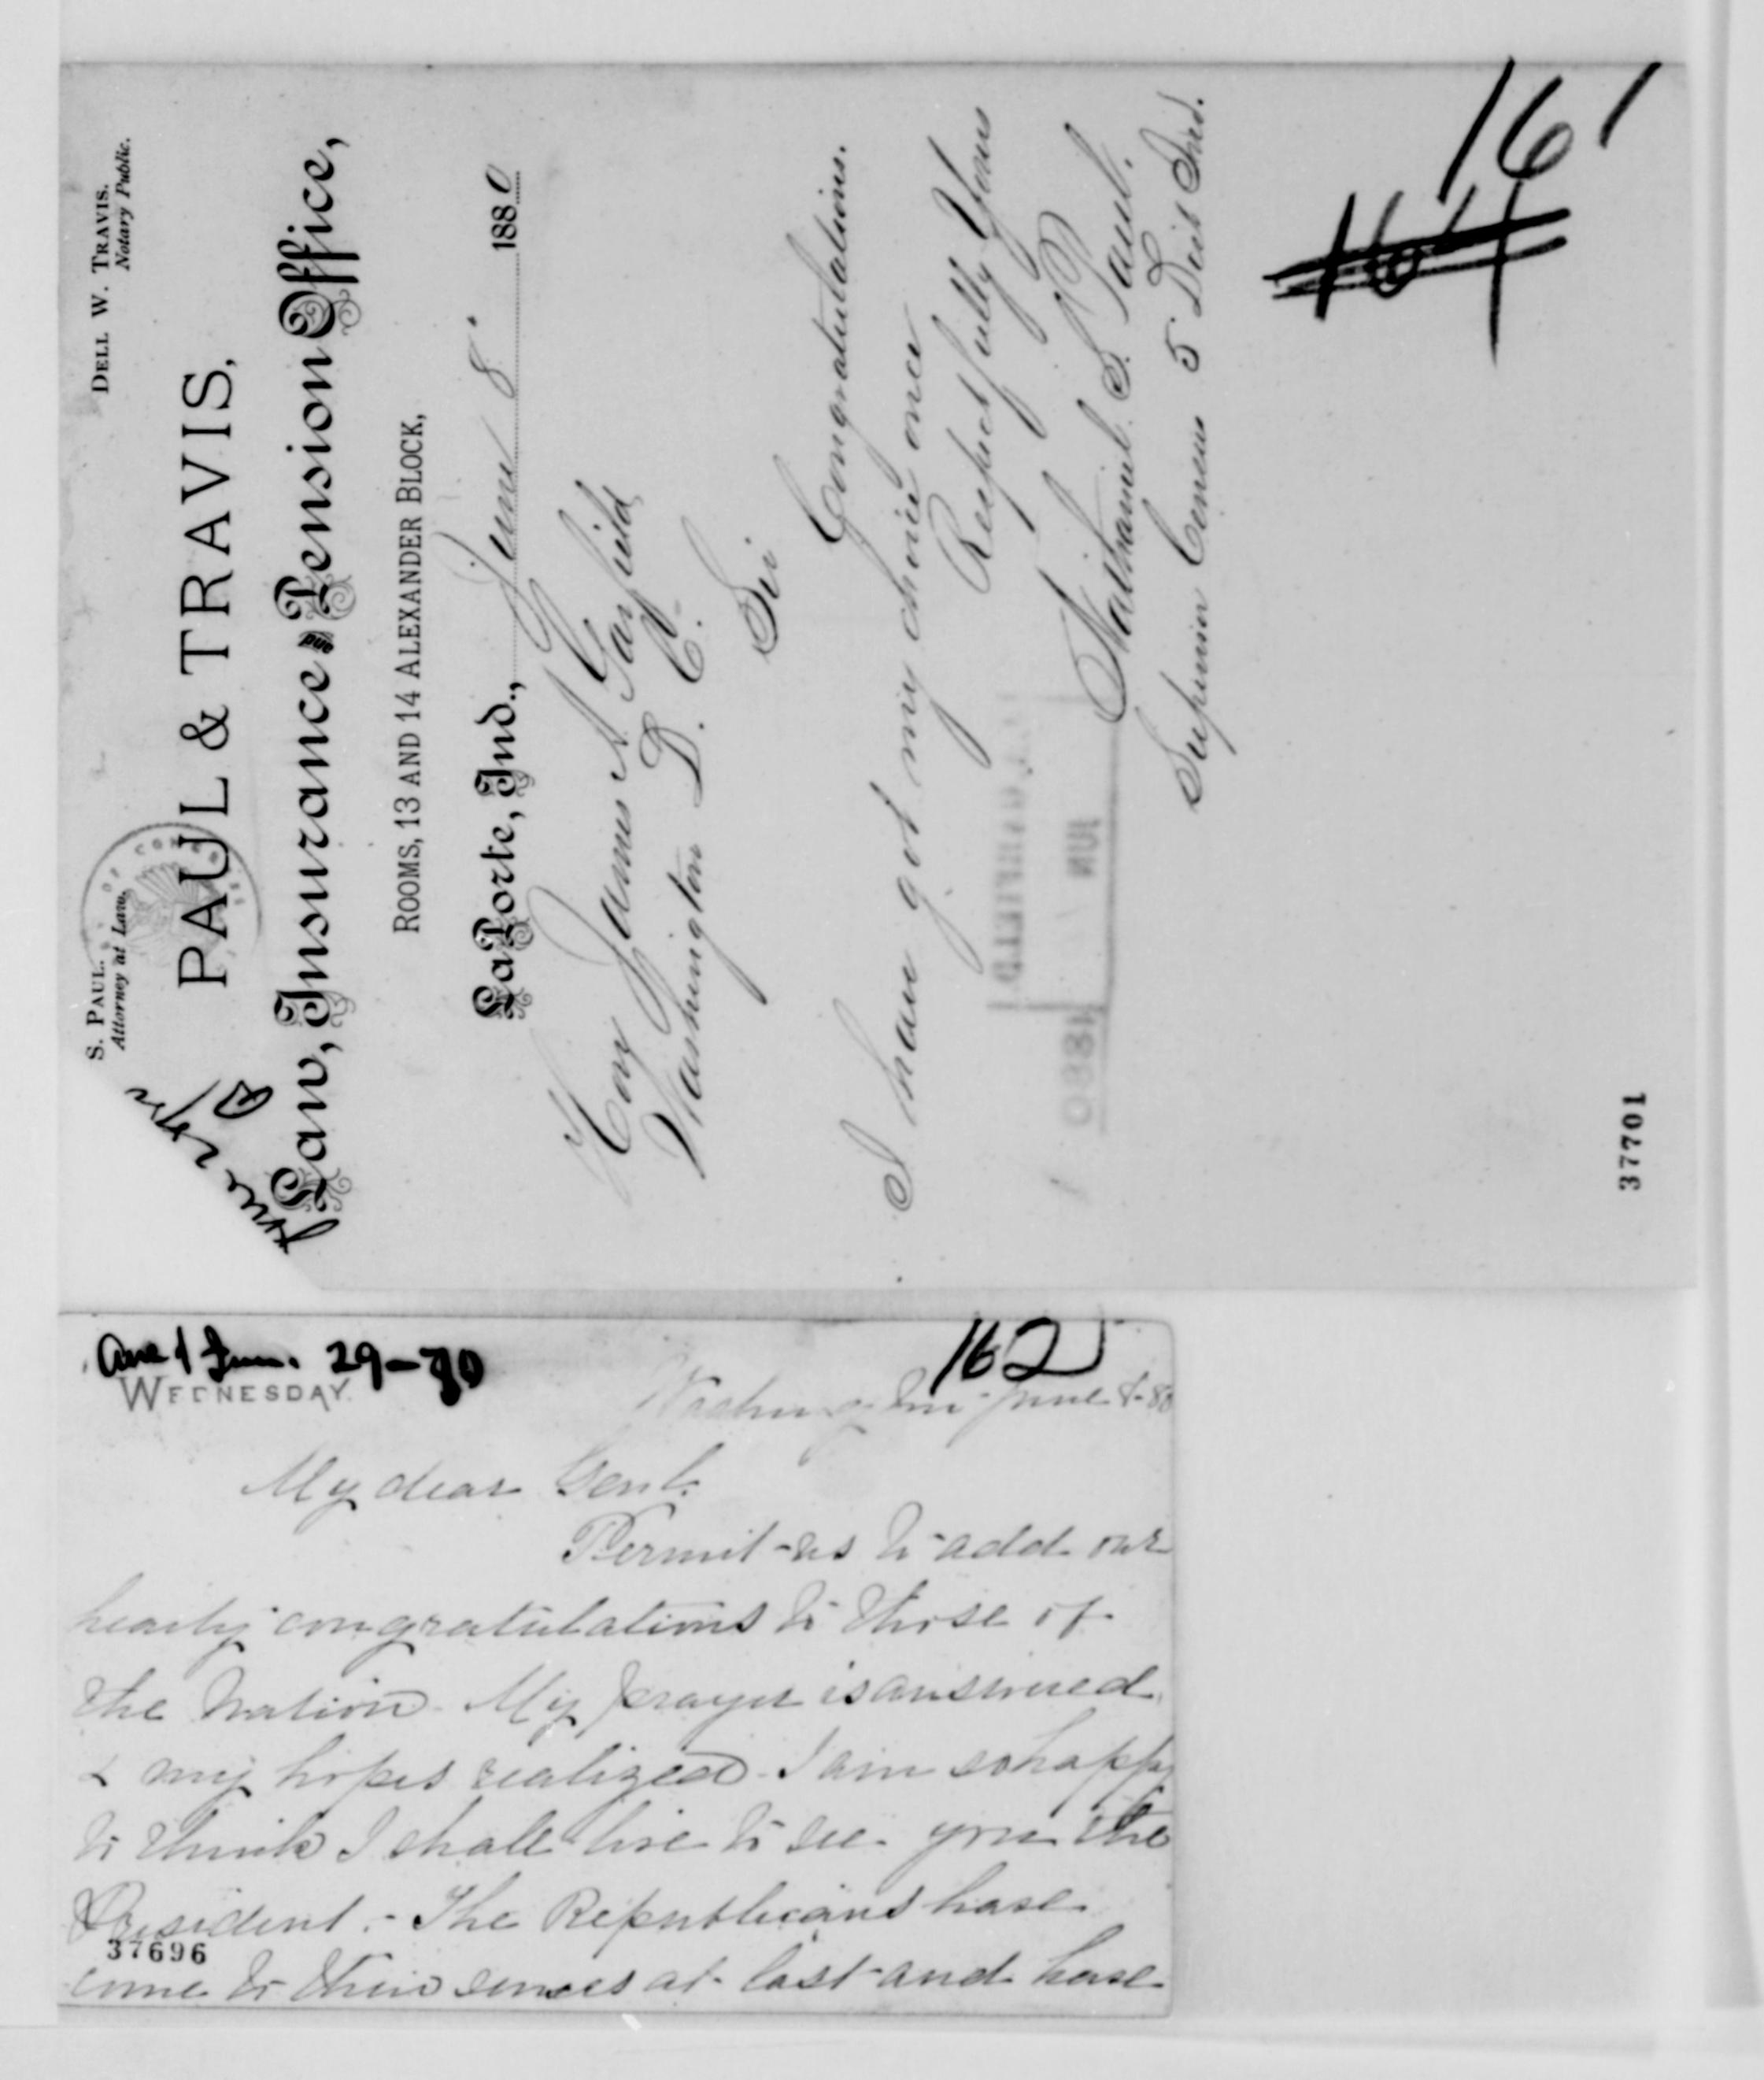 S. PAUL.
Attorney at Law.
DELL W. TRAVIS.
Notary Public.
PAUL & TRAVIS,
Law, Insurance and Pension Office,
ROOMS, 13 AND 14 ALEXANDER BLOCK,
LaPorte, Ind., June 8. 1880
Hon James A Garfield
Washington D. C.
Sir
Congratulations.
I have got my choice once
Respectfully Yours
Nathaniel S. Paul.
Supervisor Census 5 Dist Ind.
161
164
J.A. GARFIELD
JUN
1880
37701
Ansd Jun. 29-80
162
WEDNESDAY.
Washington June 8-80
My dear Genl.
Permit us to add our
hearty congratulations to those of
the Nation. My prayer is answered
& my hopes realized. I am so happy
to think I shall live to see you the
President. - The Republicans have
37696
come to their senses at last and have